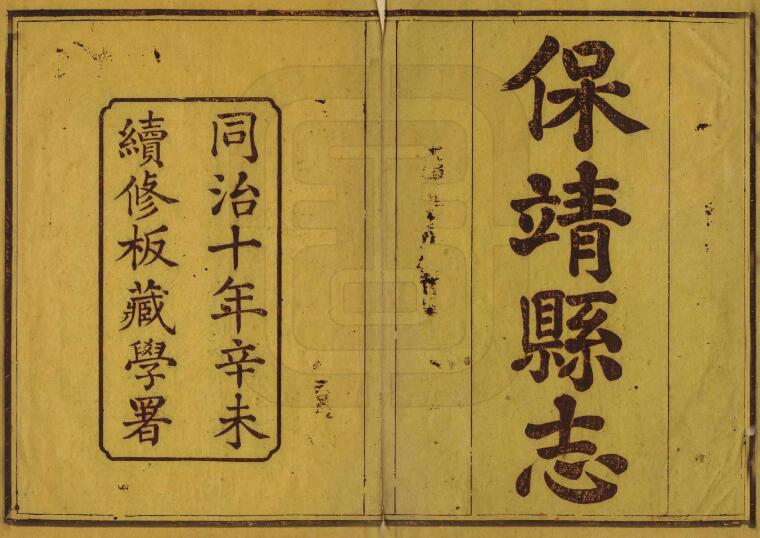 保靖縣志
同治十年辛未
續修板藏學署